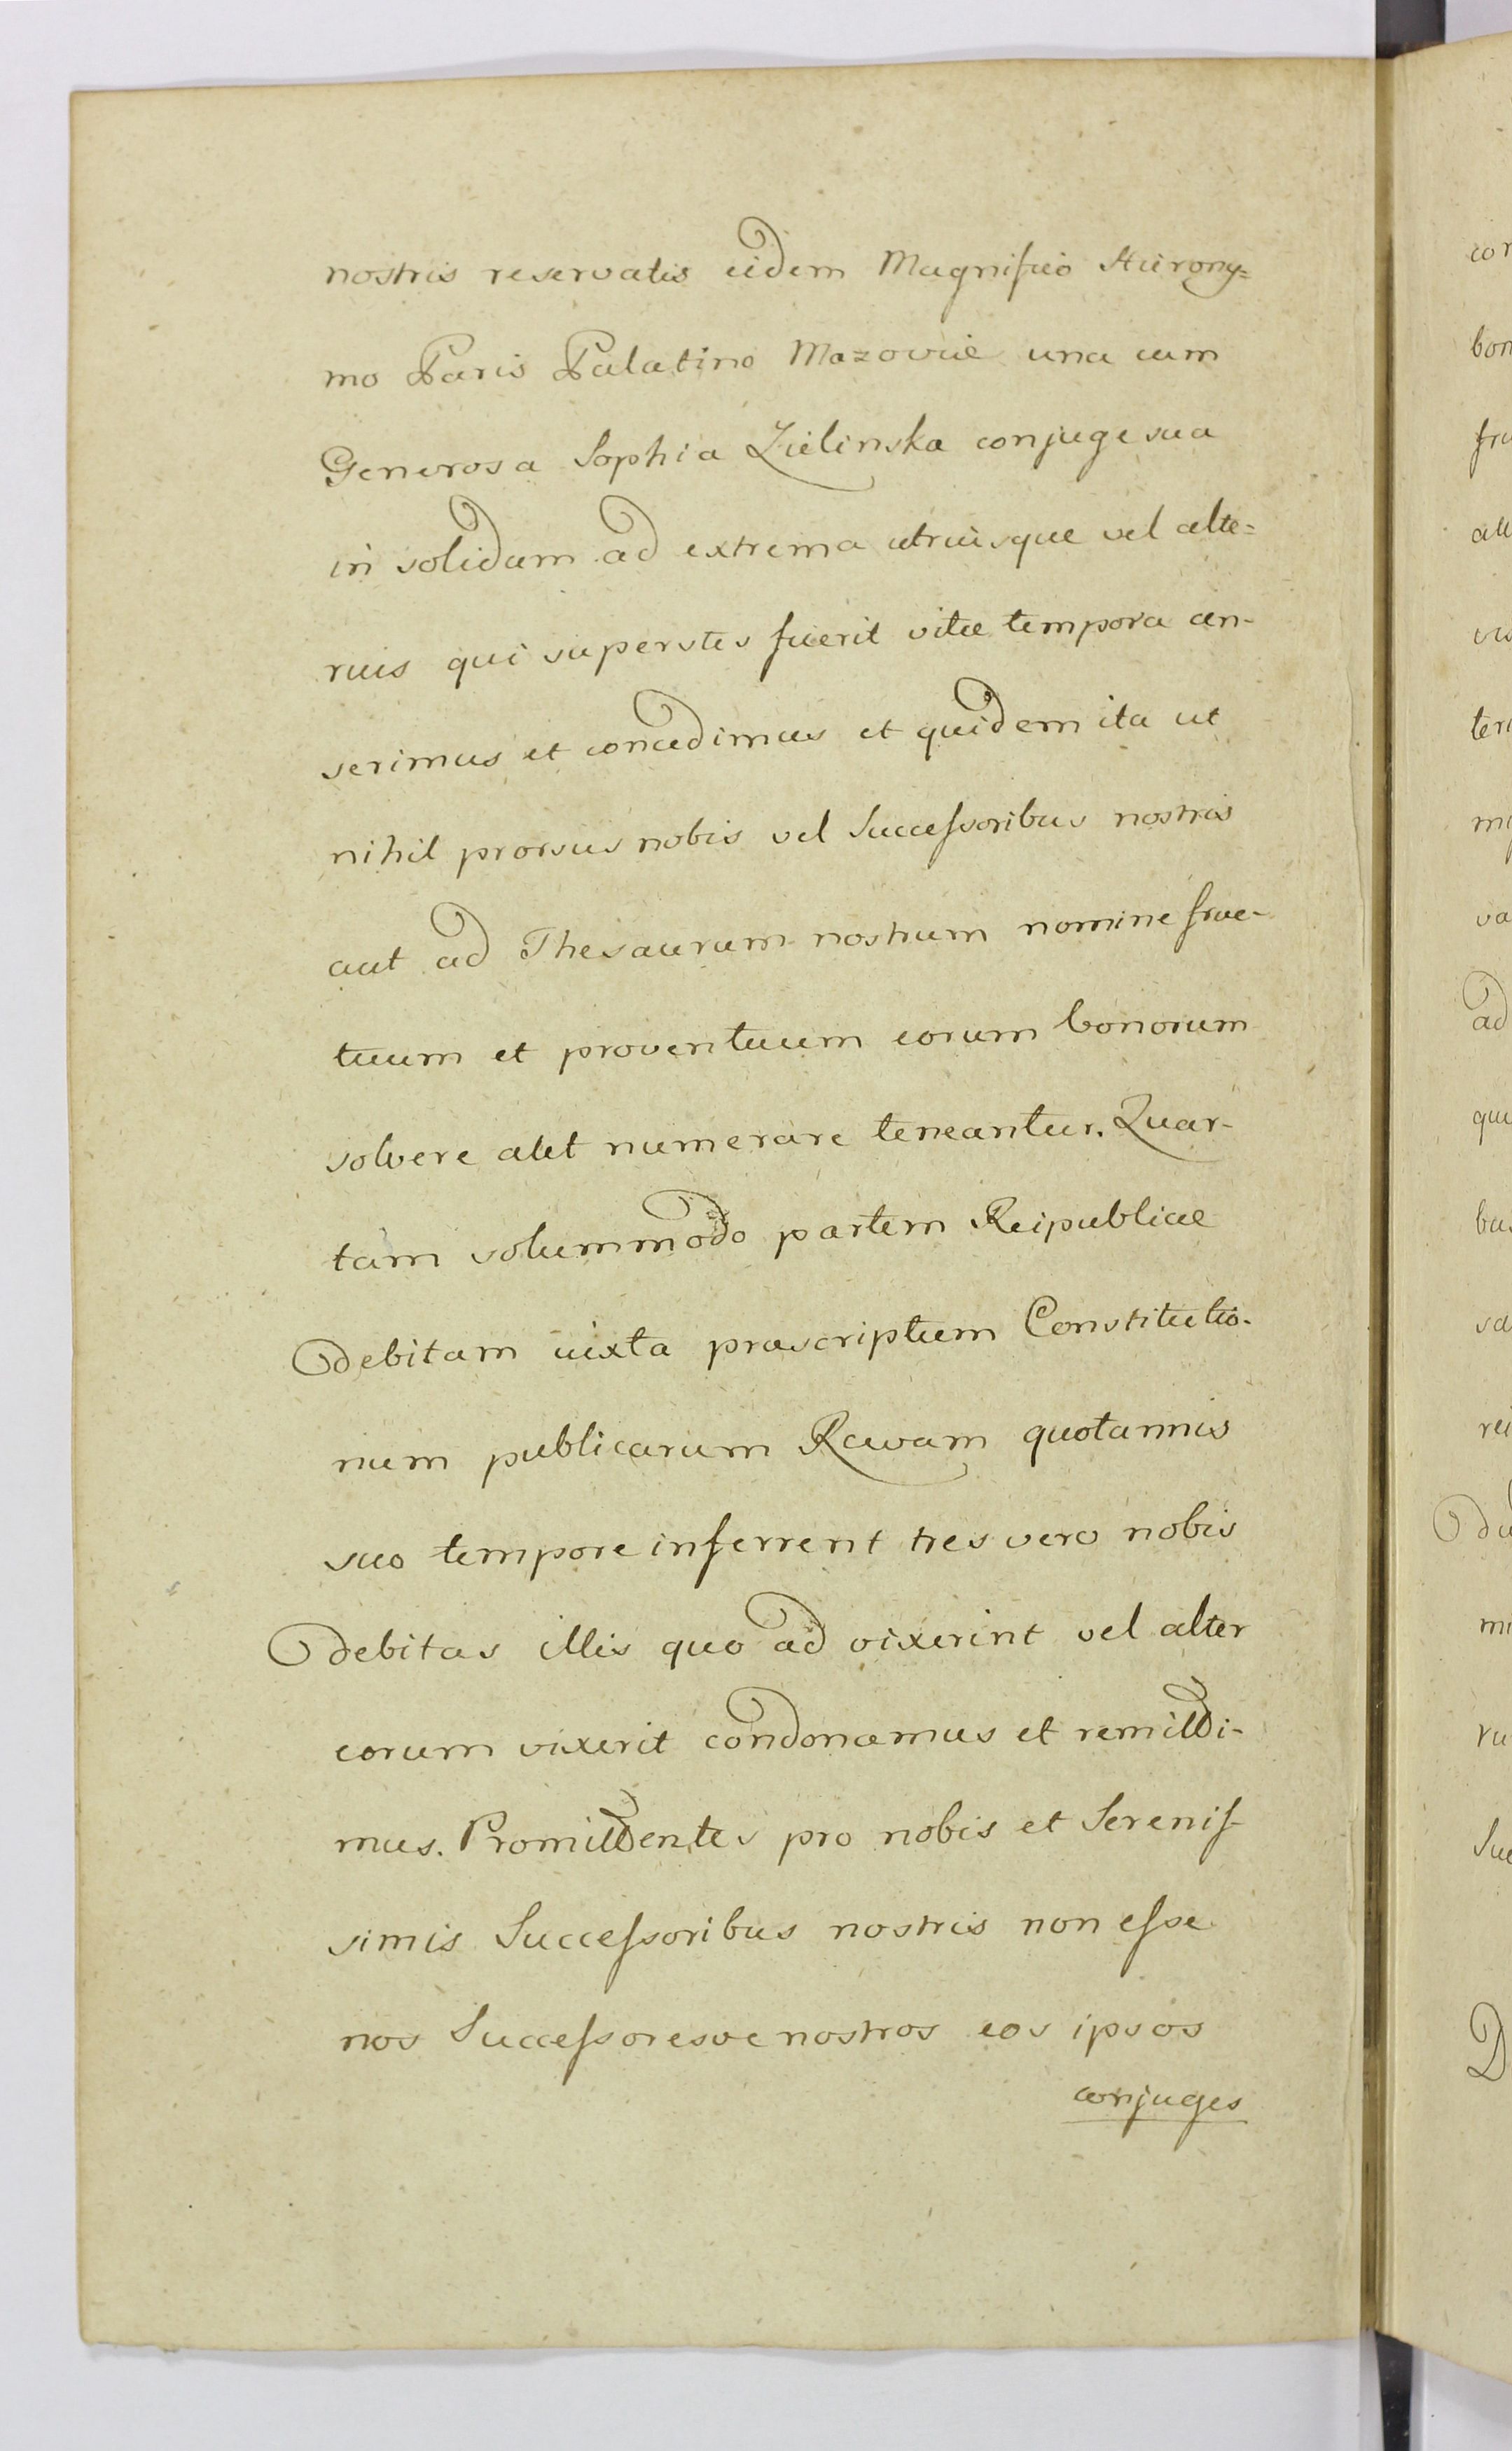 nostris reservatis eidem Magnifico Hierony=
mo Paris Palatino Mazoviæ una cum
Generosa Sophia Zielinska conjuge sua
in solidum ad extrema utriusque vel alte=
rius qui superstes fuerit vitæ tempora an-
serimus et concedimus et quidem ita ut
nihil prorsus nobis vel Succeſsoribus nostris
aut ad Thesaurum nostrum nomine fruc-
tuum et proventuum eorum bonorum
solvere aut numerare teneantur. Quar-
tam solummodo partem Reipublicæ
debitam iuxta præscriptum Constitutio-
num publicarum Ravam quotannis
suo tempore inferrent tres vero nobis
debitas illis quo ad vixerint vel alter
eorum vixerit condonamus et remitti-
mus. Promittentes pro nobis et Sereniſ-
simis Succeſsoribus nostris non eſse
nos Succeſsoresve nostros eos ipsos
conjuges
con
bon
fru
ad
qui
bus
D